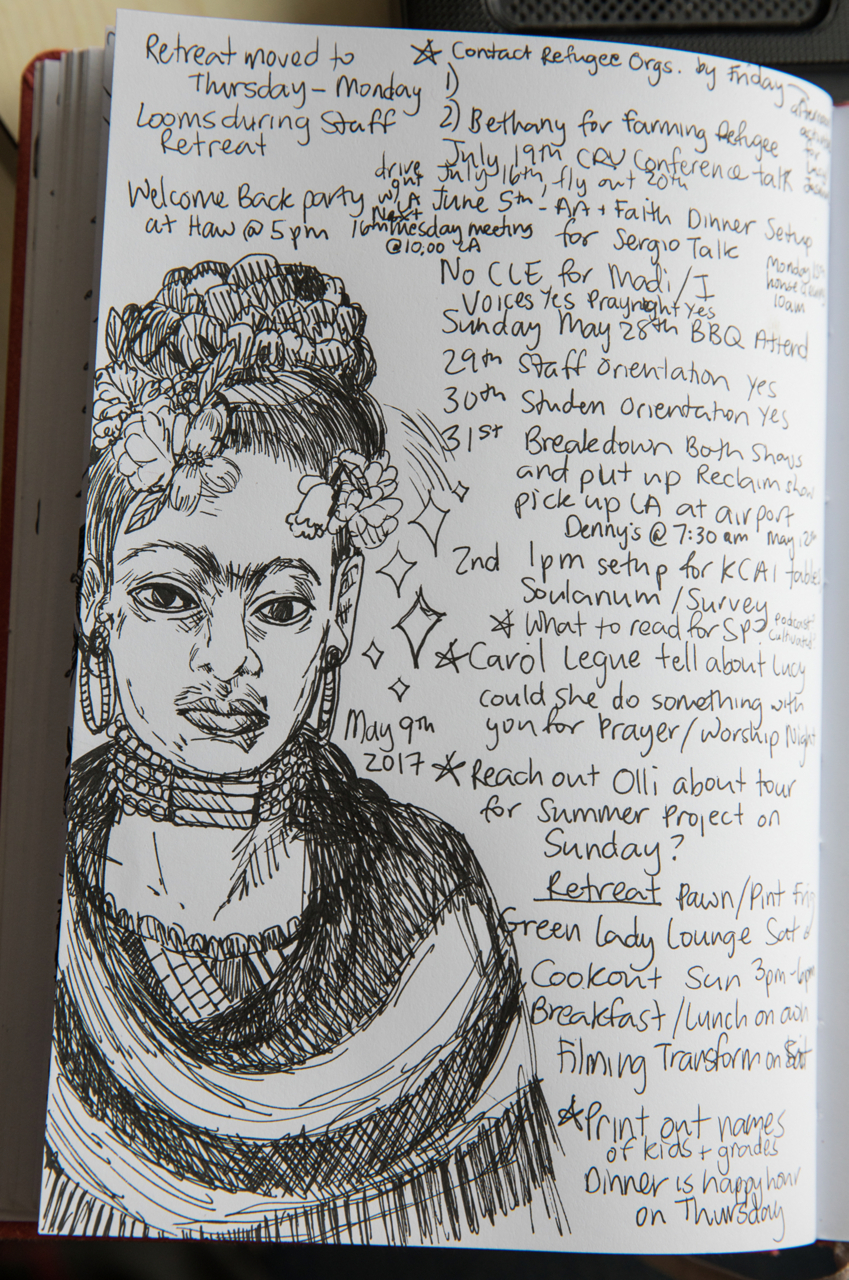 Retreat moved to
Thursday - Monday
Looms during Staff
Retreat
Welcome Back party
at Haw @ 5pm
drive
w/ LA
Next
16th Tuesday meeting
@ 10,00 LA
☆ Contact Refugee Orgs. by Friday
1)
2) Bethany for farming Refugee
July 19th CRU Conference talk
July 16th, fly out 20th
June 5th - Art + Faith Dinner Setup
for Sergio Talk
Monday
house
10am
No CLE for Madi/I
Voices Yes Praynight Yes
Sunday May 28th BBQ Attend
29th Staff Orientation Yes
30th Studen Orientation Yes
31st Breakdown Both Shows
and put up Reclaim show
pick up LA at airport
Denny's @ 7:30 am May 12th
2nd 1pm setup for KCAI table
Soulanum/Survey
☆ What to read for SP? podcast?
☆ Carol Legue tell about Lucy
could she do something with
you for Prayer/Worship Night
May 9th
2017
☆ Reach out Olli about tour
for Summer Project on
Sunday?
Retreat Pawn/Pint
Green Lady Lounge Sat
Cookout Sun 3pm-6pm
Breakfast/Lunch on own
Filming Transform on Sat
☆ Print out names
of kids + grades
Dinner is happy hour
on Thursday